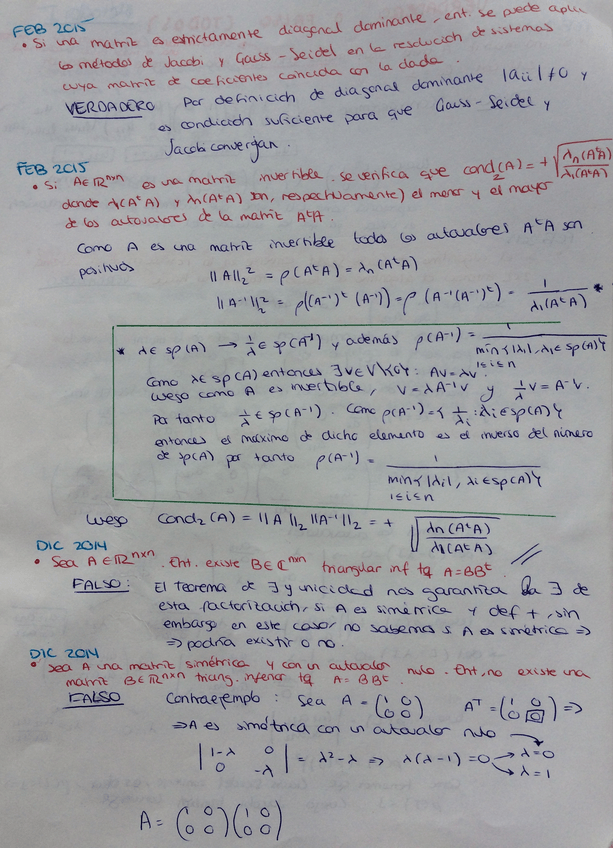 FEB 2015
• Si una matriz es estrictamente diagonal dominante, ent. se puede
los métodos de Jacobi y Gauss-Seidel en la resolución de sistemas
cuya matriz de coeficientes coincida con la dada.
VERDADERO Por definición de diagonal dominante |aii|≠0 y
es condición suficiente para que Gauss-Seidel y
Jacobi converjan.
FEB 2015
• Si A∈ℝⁿˣⁿ es una matriz invertible. se verifica que cond₂(A) = +√(λn(AᵗA)/λ1(AᵗA))
donde λ1(AᵗA) y λn(AᵗA) son, respectivamente) el menor y el mayor
de los autovalores de la matriz AᵗA.
Como A es una matriz invertible todos los autovalores AᵗA son
positivos
||A||₂² = ρ(AᵗA) = λn(AᵗA)
||A⁻¹||₂² = ρ((A⁻¹)ᵗ (A⁻¹)) = ρ(A⁻¹(A⁻¹)ᵗ) = 1/λ1(AᵗA) *
* λ∈ sp(A) → 1/λ ∈ sp(A⁻¹) y además ρ(A⁻¹) = 1/min{|λi|, λi∈sp(A)} 1≤i≤n
Como λ∈ sp(A) entonces ∃v∈V\{0}: Av=λv.
luego como A es invertible, v=λA⁻¹v y 1/λ v = A⁻¹v.
Por tanto 1/λ ∈ sp(A⁻¹). Como ρ(A⁻¹)={1/λi : λi∈sp(A)}
entonces el máximo de dicho elemento es el inverso del número
de sp(A) por tanto ρ(A⁻¹) = 1/min{|λi|, λi∈sp(A)} 1≤i≤n
luego Cond₂(A) = ||A||₂ ||A⁻¹||₂ = + √(λn(AᵗA)/λ1(AᵗA))
DIC 2014
• Sea A∈ℝⁿˣⁿ. Ent. existe B∈ℂⁿˣⁿ triangular inf tq A=BBᵗ.
FALSO: El teorema de ∃ y unicidad nos garantiza la ∃ de
esta factorización, si A es simétrica y def +, sin
embargo en este caso, no sabemos si A es simétrica ⇒
⇒ podría existir o no.
DIC 2014
• Sea A una matriz simétrica y con un autovalor nulo. Ent, no existe una
matriz B∈ℝⁿˣⁿ triang. inferior tq A = BBᵗ
FALSO Contraejemplo: Sea A = (1 0; 0 0) Aᵀ = (1 0; 0 0) ⇒
⇒ A es simétrica con un autovalor nulo
|1-λ 0; 0 -λ| = λ²-λ ⇒ λ(λ-1) = 0 → λ=0
→ λ=1
A = (1 0; 0 0)(1 0; 0 0)